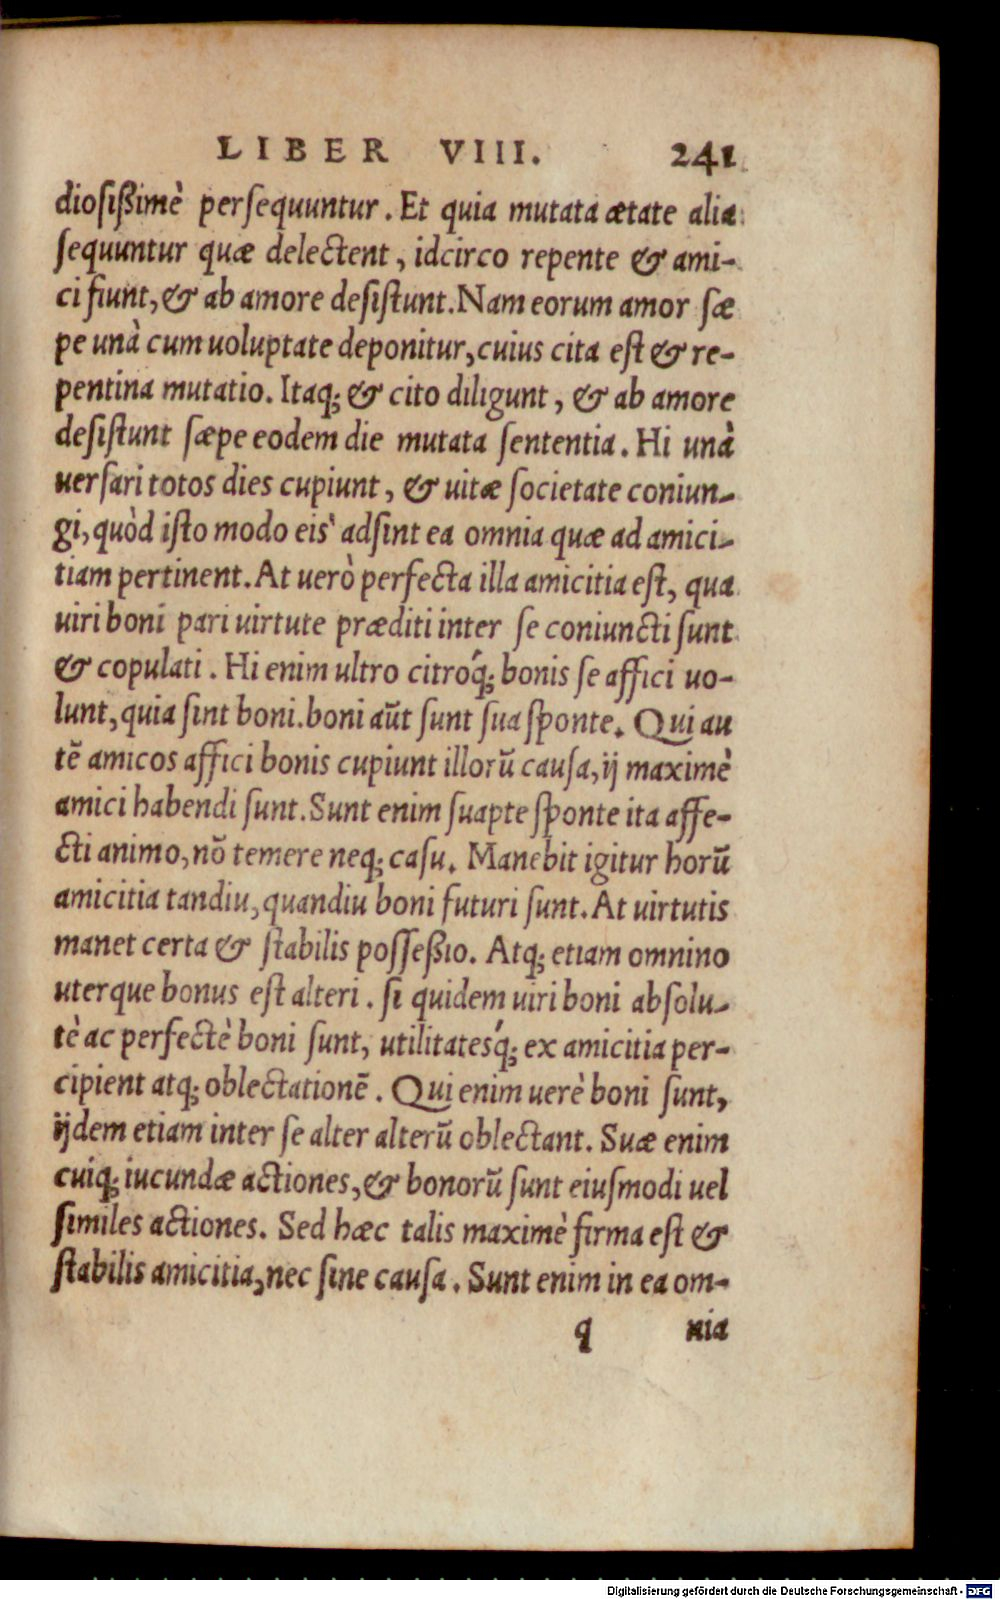 LIBER VIII. 241
dioſißimè perſequuntur. Et quia mutata ætate alia
ſequuntur quæ delectent, idcirco repente & ami-
ci fiunt, & ab amore deſiſtunt. Nam eorum amor ſæ
pe unà cum uoluptate deponitur, cuius cita eſt & re-
pentina mutatio. Itaq; & cito diligunt, & ab amore
deſiſtunt ſæpe eodem die mutata ſententia. Hi unà
uerſari totos dies cupiunt, & uitæ ſocietate coniun-
gi, quòd iſto modo eis adſint ea omnia quæ ad amici-
tiam pertinent. At uerò perfecta illa amicitia eſt, qua
uiri boni pari uirtute præditi inter ſe coniuncti ſunt
& copulati. Hi enim ultro citróq; bonis ſe affici uo-
lunt, quia ſint boni. boni aūt ſunt ſua ſponte. Qui au
tē amicos affici bonis cupiunt illorū cauſa, ij maximè
amici habendi ſunt. Sunt enim ſuapte ſponte ita affe-
cti animo, nō temere neq; caſu. Manebit igitur horū
amicitia tandiu, quandiu boni futuri ſunt. At uirtutis
manet certa & ſtabilis poſſeßio. Atq; etiam omnino
uterque bonus eſt alteri. ſi quidem uiri boni abſolu-
tè ac perfectè boni ſunt, utilitateśq; ex amicitia per-
cipient atq; oblectationē. Qui enim uerè boni ſunt,
ijdem etiam inter ſe alter alterū oblectant. Suæ enim
cuiq; iucundæ actiones, & bonorū ſunt eiuſmodi uel
ſimiles actiones. Sed hæc talis maximè firma eſt &
ſtabilis amicitia, nec ſine cauſa. Sunt enim in ea om-
q nia
Digitalisierung gefördert durch die Deutsche Forschungsgemeinschaft - DFG